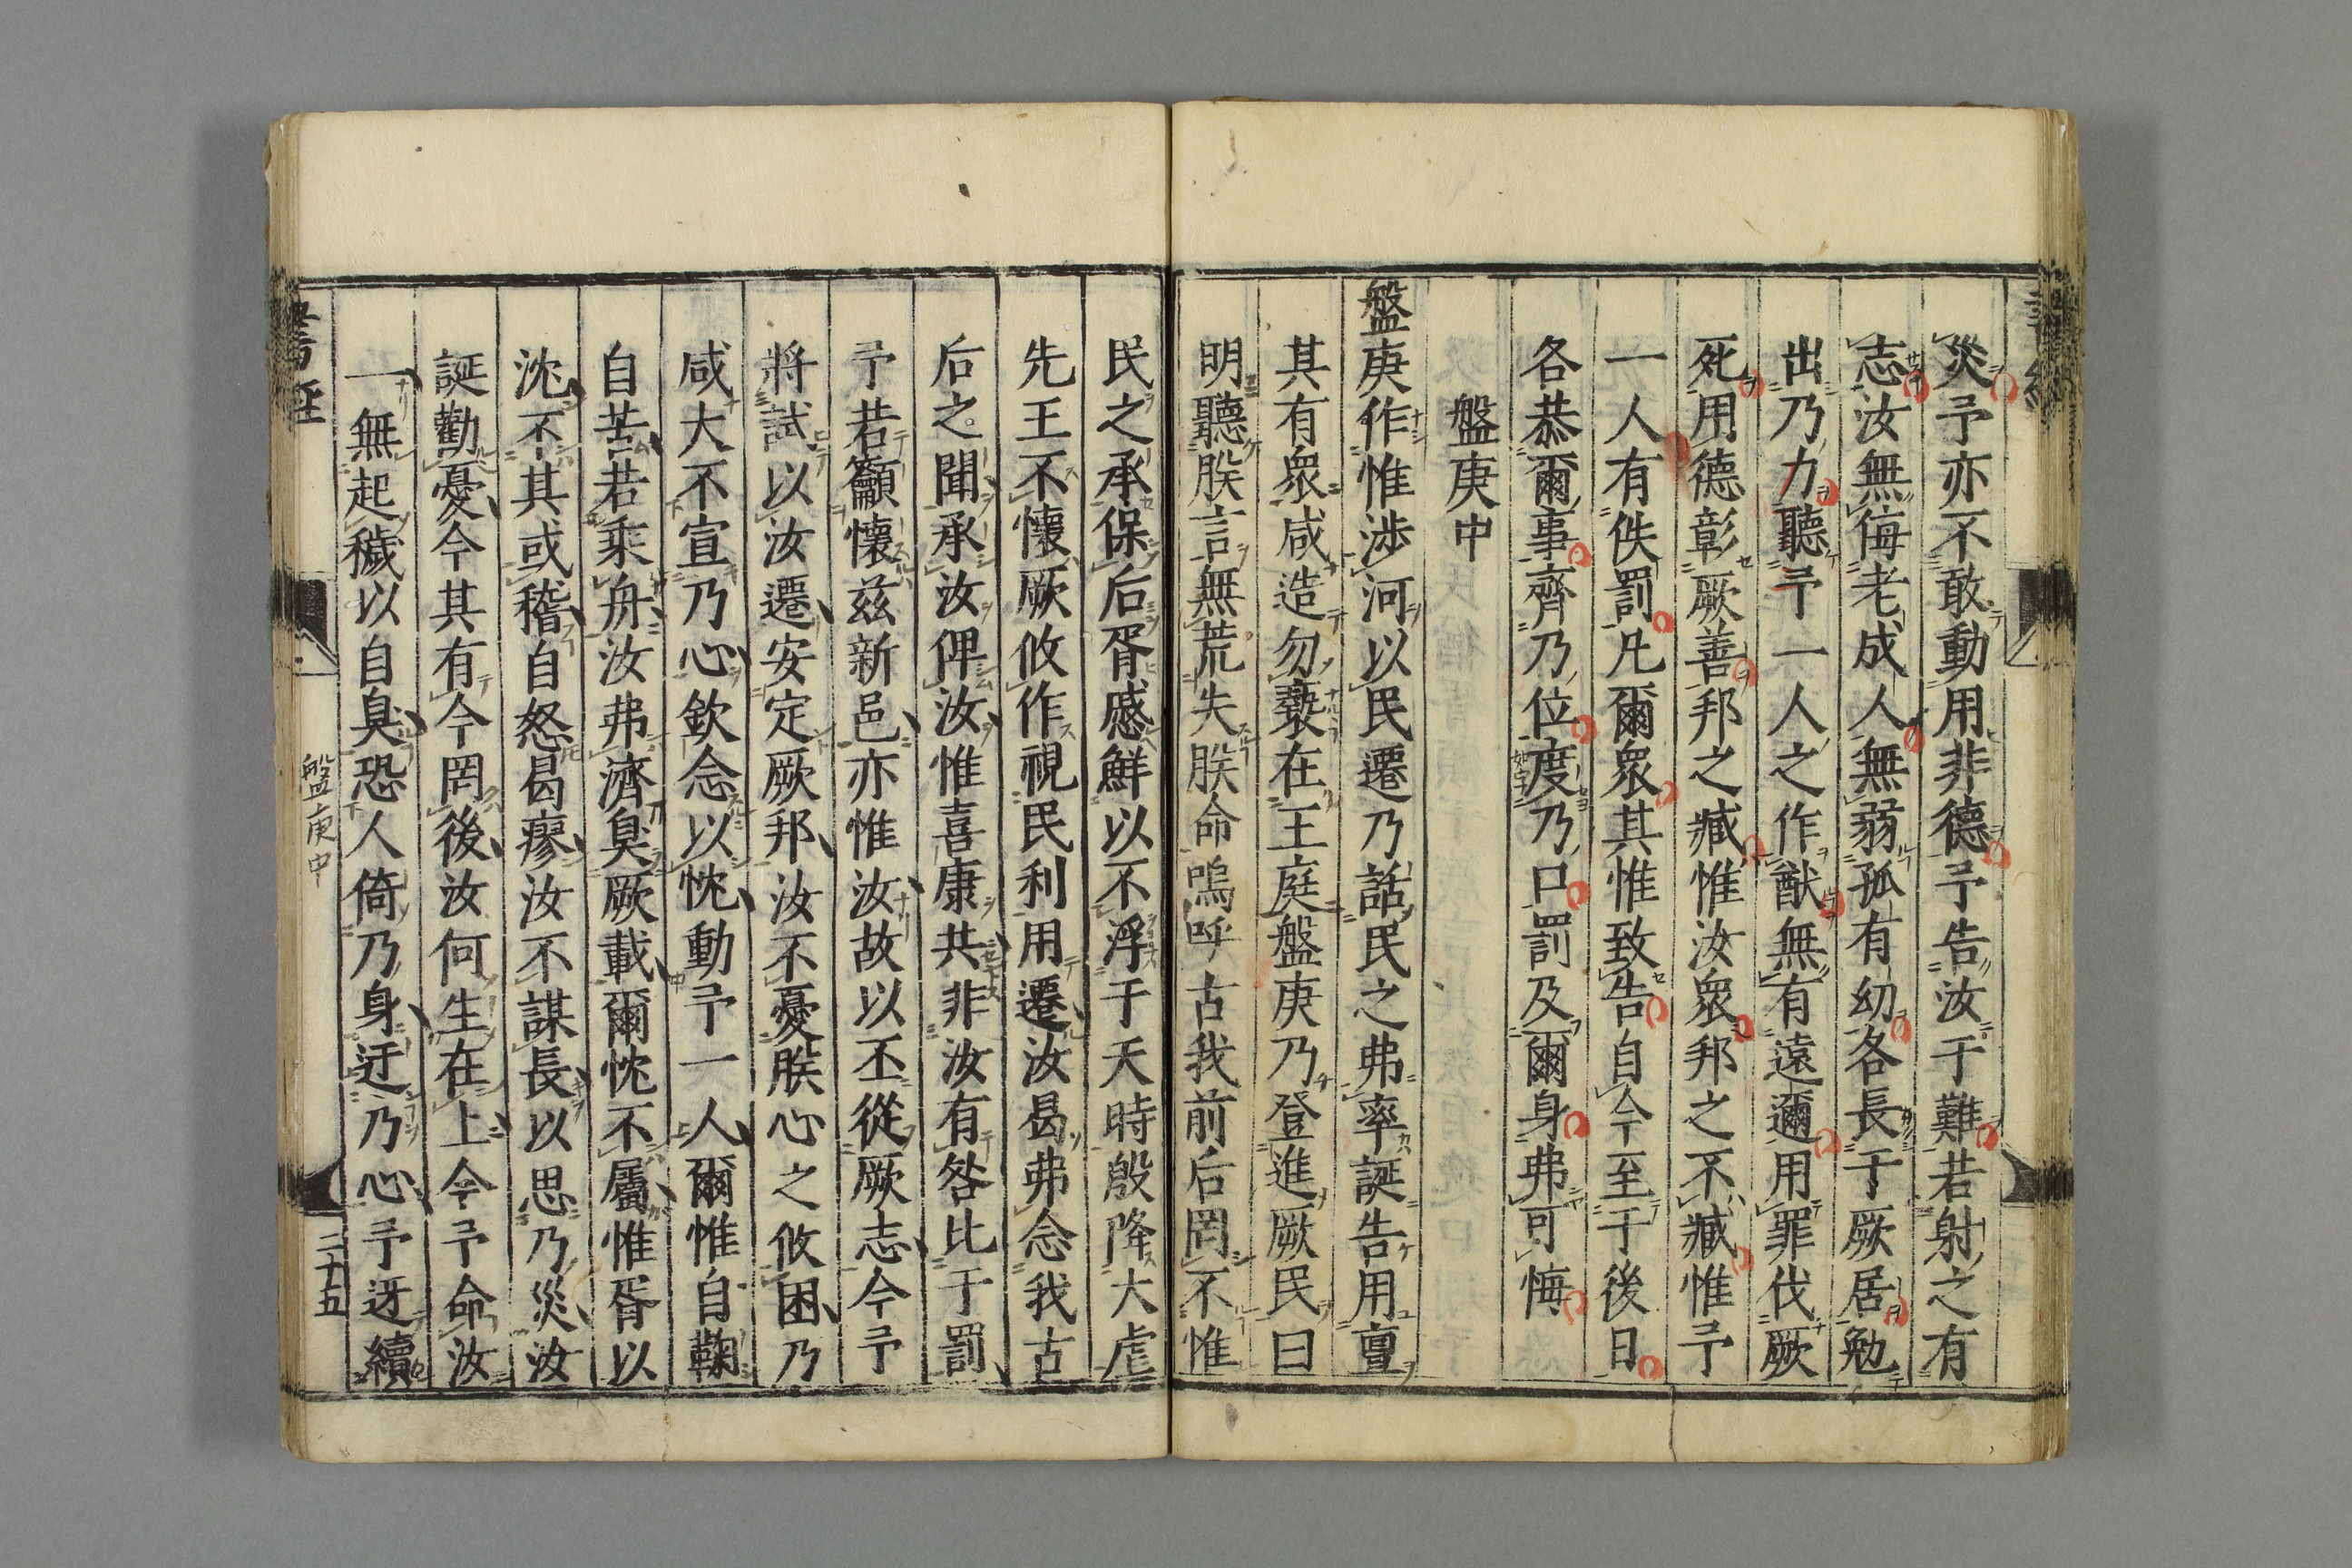 災予亦不敢動用非德予告汝于難若射之有
志汝無侮老成人無弱孤有幼各長于厥居勉
出乃力聽予一人之作猷無有遠邇用罪伐厥
死用德彰厥善邦之臧惟汝眾邦之不臧惟予
一人有佚罰凡爾眾其惟致告自今至于後日
各恭爾事齊乃位度乃口罰及爾身弗可悔
盤庚中
盤庚作惟涉河以民遷乃話民之弗率誕告用亶
其有眾咸造勿褻在王庭盤庚乃登進厥民曰
明聽朕言無荒失朕命嗚呼古我前后罔不惟
民之承保后胥慼鮮以不浮于天時殷降大虐
先王不懷厥攸作視民利用遷汝曷弗念我古
后之聞承汝俾汝惟喜康共非汝有咎比于罰
予若籲懷玆新邑亦惟汝故以丕從厥志今予
將試以汝遷安定厥邦汝不憂朕心之攸困乃
咸大不宣乃心欽念以忱動予一人爾惟自鞠
自苦若乘舟汝弗濟臭厥載爾忱不屬惟胥以
沈不其或稽自怒曷瘳汝不謀長以思乃災汝
誕勸憂今其有今罔後汝何生在上今予命汝
一無起穢以自臭恐人倚乃身迂乃心予迓續
書經
盤庚中
二十五